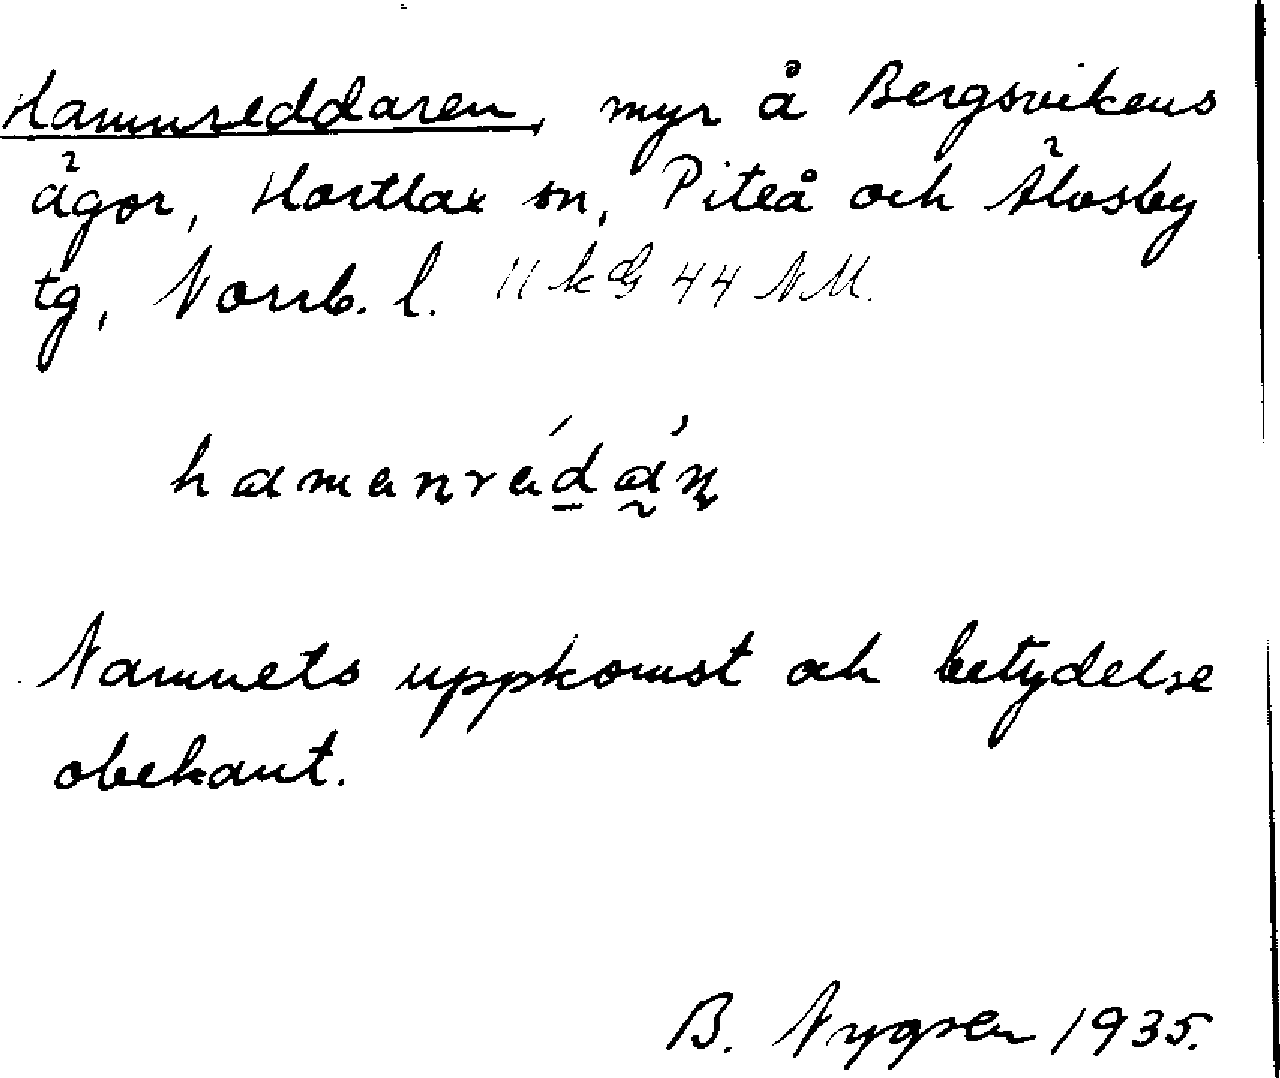 Hamnreddaren, myr å Bergsvikens
ägor, Hortlax sn, Piteå och Älvsby
tg, Norrb. l. 11 k G 44 NM.
Namnets uppkomst och betydelse
obekant.
B. Nygren 1935.